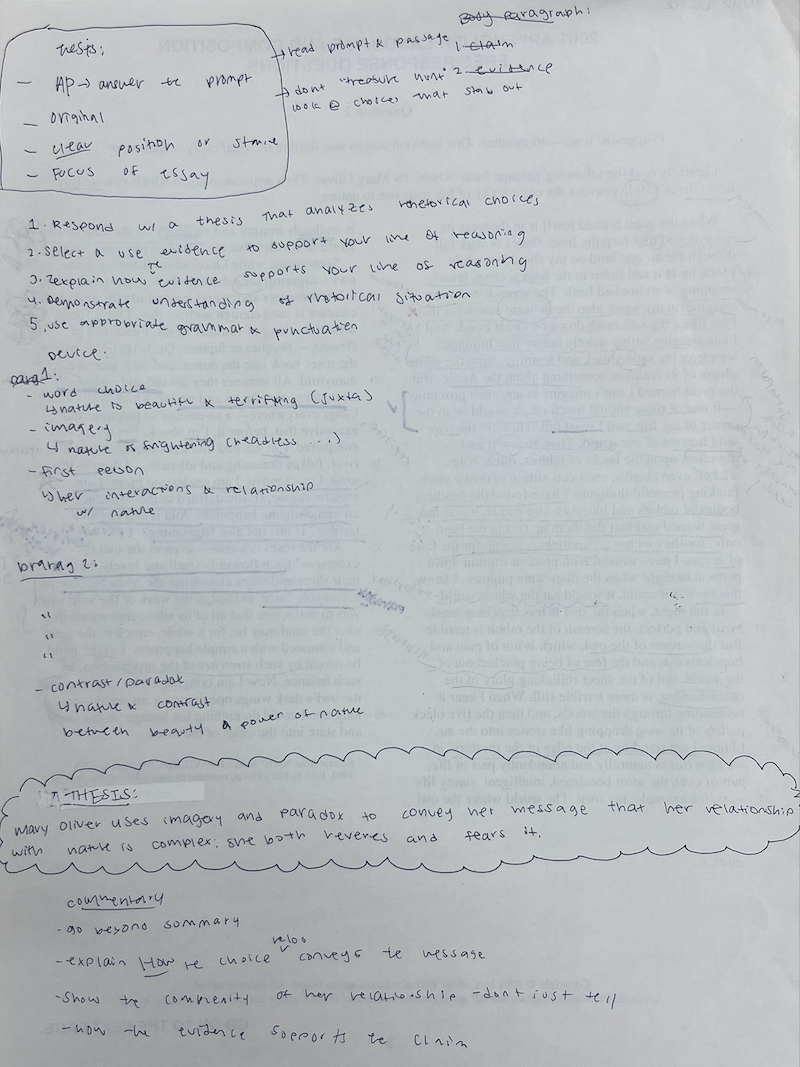 Thesis:
— AP → answer te prompt
— original
— clear position or stance
— Focus of essay
→ read prompt & passage
→ dont "treasure hunt"
look @ choices that stab out
Body Paragraph:
1. claim
2. evidence
1. Respond w/ a thesis that analyzes rhetorical choices
2. select a use evidence to support your line of reasoning
3. explain how te evidence supports your line of reasoning
4. demonstrate understanding of rhetorical situation
5. use appropriate grammar & punctuation
Device:
parag 1:
- word choice
↳ nature is beautiful & terrifying (juxta)
- imagery
↳ nature is frightening (headless ...)
- first person
↳ her interactions & relationship
w/ nature
parag 2:
"
"
"
- contrast/paradox
↳ nature & contrast
between beauty & power of nature
THESIS:
Mary Oliver uses imagery and paradox to convey her message that her relationship
with nature is complex; she both reveres and fears it.
commentary
- go beyond summary
- explain How te choice conveys te message
- show te complexity of her relationship - dont just tell
- how the evidence supports te claim